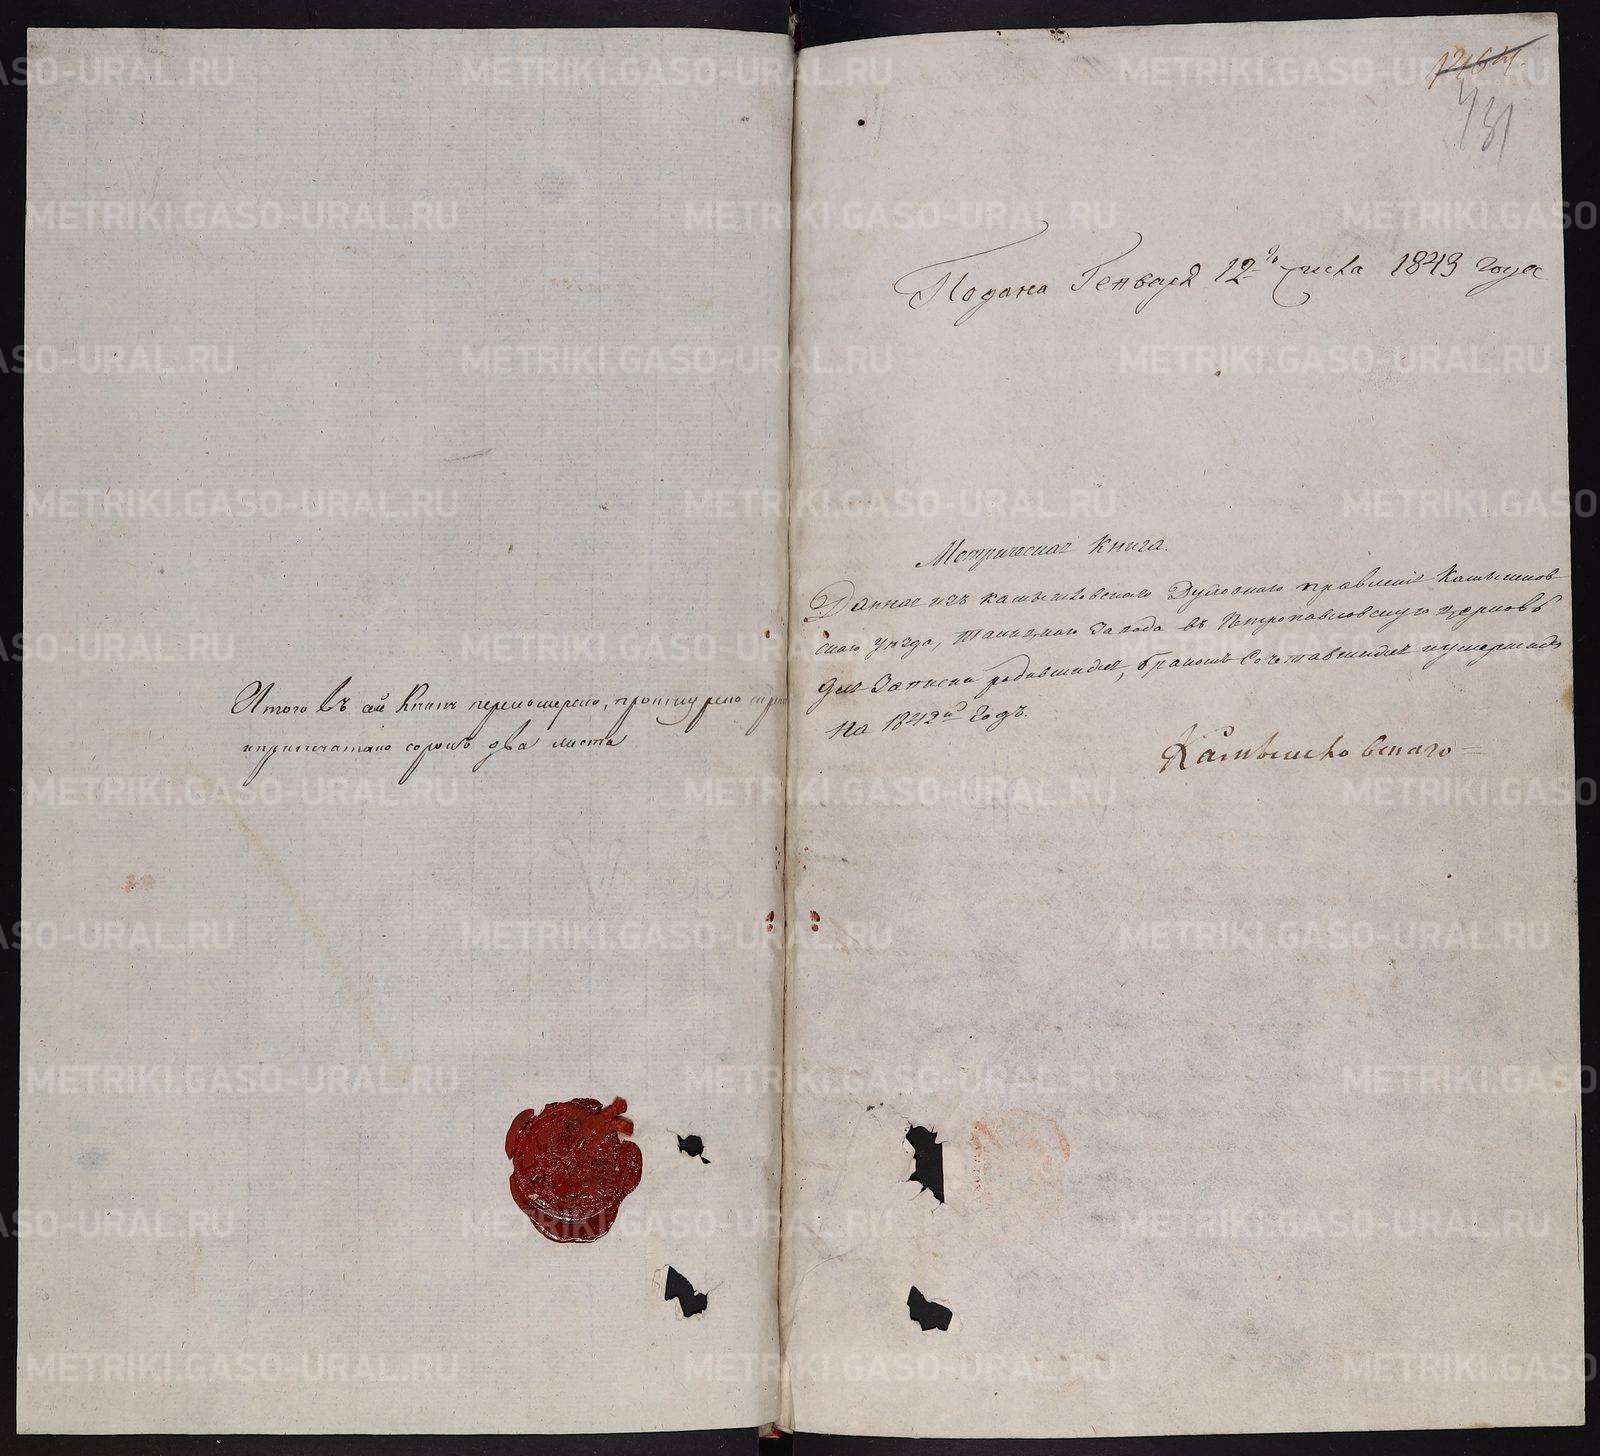 Итого въ сей Книге перемечено, прошнурено
и припечатано сорокъ два листа
1264.
431
Подана Генваря 12го числа 1843 года
Метрическая Книга.
Данная изъ Камышловскаго Духовнаго правленія Камышлов-
скаго уезда, завода въ Петропавловскую церковь
для Записки родившихся, бракомъ Сочетавшихся и умершихъ
На 1842й Годъ.
Камышловскаго
METRIKI.GASO-URAL.RU